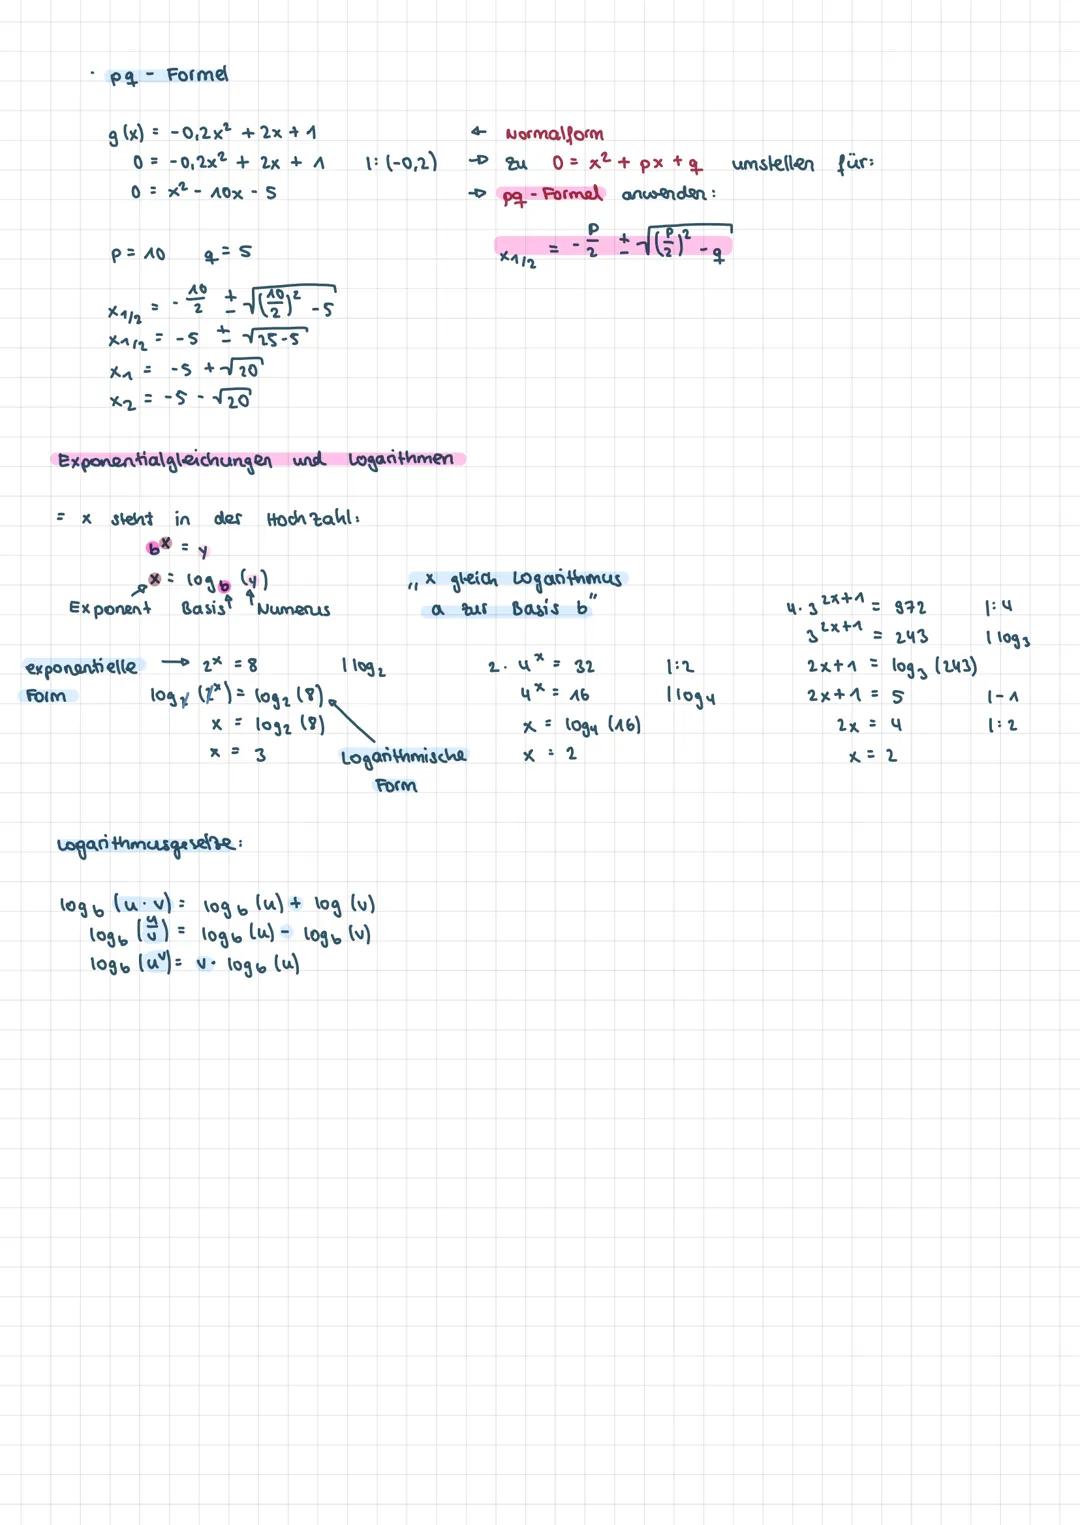 · pq - Formel
g(x) = -0,2x² + 2x + 1 ← Normalform
0 = -0,2x² + 2x + 1 |: (-0,2) → zu 0 = x² + px + q umstellen für:
0 = x² - 10x - 5 → pq - Formel anwenden:
x1/2 = - p/2 ± √((p/2)² - q)
p = 10 q = 5
x1/2 = - 10/2 ± √((10/2)² - 5)
x1/2 = -5 ± √(25-5)
x1 = -5 + √20
x2 = -5 - √20
Exponentialgleichungen und Logarithmen
= x steht in der Hochzahl:
b^x = y
x = log_b (y)
Exponent Basis Numerus
„ x gleich Logarithmus
a zur Basis b"
exponentielle → 2^x = 8 | log_2
Form log_2 (2^x) = log_2 (8)
x = log_2 (8)
x = 3
Logarithmische
Form
2 · 4^x = 32 |: 2
4^x = 16 | log_4
x = log_4 (16)
x = 2
4 · 3^(2x+1) = 972 |: 4
3^(2x+1) = 243 | log_3
2x+1 = log_3 (243)
2x+1 = 5 | - 1
2x = 4 |: 2
x = 2
Logarithmusgesetze:
log_b (u · v) = log_b (u) + log (v)
log_b (u/v) = log_b (u) - log_b (v)
log_b (u^v) = v · log_b (u)